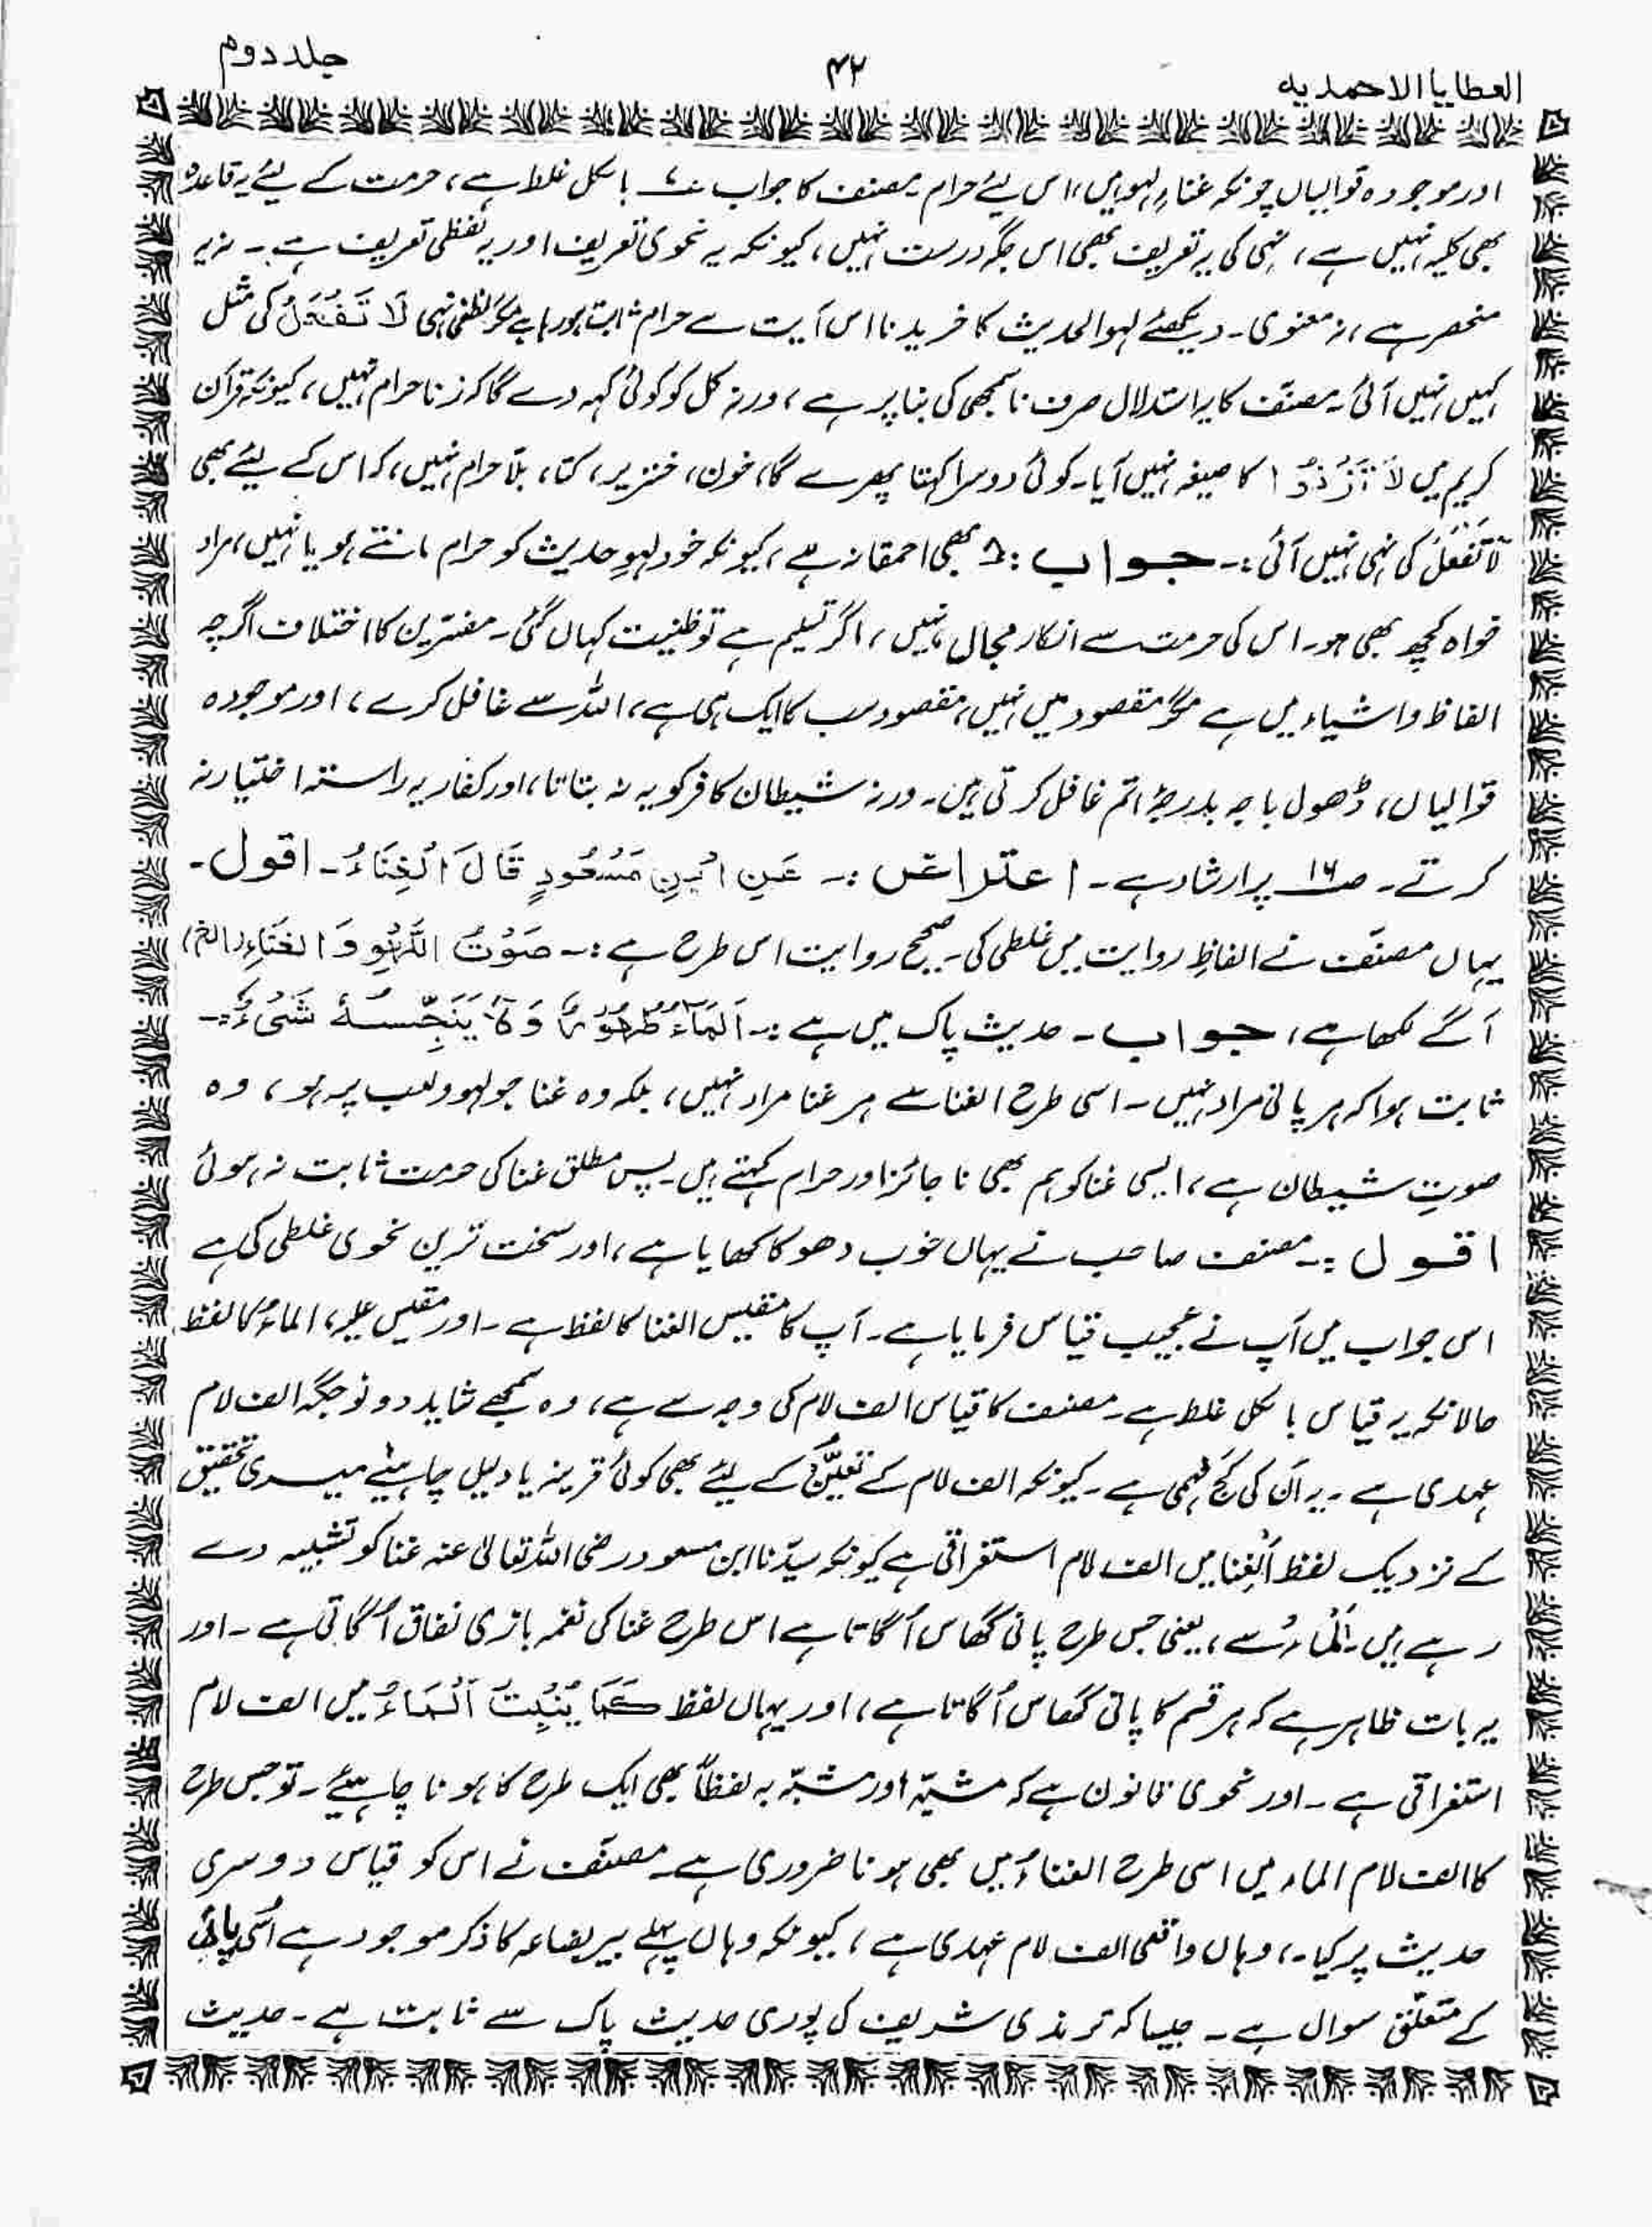 العطایا الاحمدیہ
۴۲
جلد دوم
اور موجودہ قوالیاں چونکہ غناءِ لہو ہیں، اس لیئے حرام۔ مصنف کا جواب بالکل غلط ہے، حرمت کے لیئے یہ قاعدہ
بھی کلیہ نہیں ہے، نہی کی یہ تعریف بھی اس جگہ درست نہیں، کیونکہ یہ نحوی تعریف اور یہ لفظی تعریف ہے۔ نہ یہ
منحصر ہے، نہ معنوی۔ دیکھئے لہو الحدیث کا خریدنا اس آیت سے حرام ثابت ہو رہا ہے مگر لفظی نہی لَا تَفْعَلْ کی مثل
کہیں نہیں آئی۔ مصنّف کا یہ استدلال صرف نا سمجھی کی بنا پر ہے، ورنہ کل کو کوئی کہہ دے گا کہ زنا حرام نہیں، کیونکہ قرآن
کریم میں لَا تَزْنُوْا کا صیغہ نہیں آیا۔ کوئی دوسرا کہتا پھرے گا، خون، خنزیر، کتا، بلّا حرام نہیں، کہ اس کے لیئے بھی
لَا تَفْعَلْ کی نہی نہیں آئی :۔ جواب : بھی احمقانہ ہے، کیونکہ خود لہوِ حدیث کو حرام مانتے ہو یا نہیں، مراد
خواہ کچھ بھی ہو۔ اس کی حرمت سے انکار مجال نہیں، اگر تسلیم ہے تو ظنیت کہاں گئی۔ مفسّرین کا اختلاف اگرچہ
الفاظ و اشیاء میں ہے مگر مقصود میں نہیں، مقصود سب کا ایک ہی ہے، اللہ سے غافل کرے، اور موجودہ
قوالیاں، ڈھول باجہ بدرجۂ اتم غافل کرتی ہیں۔ ورنہ شیطان کافر کو یہ نہ بتاتا، اور کفار یہ راستہ اختیار نہ
کرتے۔ صـ۱۶ پر ارشاد ہے۔ اعتراض :۔ عَنِ ابْنِ مَسْعُودٍ قَالَ الْغِنَاءُ۔ اقول۔
یہاں مصنّف نے الفاظِ روایت میں غلطی کی۔ صحیح روایت اس طرح ہے :۔ صَوْتُ اللَّهْوِ وَ الْغِنَاءِ (الخ)
آگے لکھا ہے، جواب۔ حدیث پاک میں ہے :۔ اَلْمَاءُ طَهُوْرٌ وَ لَا يَنَجِّسُهٗ شَىْءٌ :۔
ثابت ہوا کہ ہر پانی مراد نہیں۔ اسی طرح الغنا سے ہر غنا مراد نہیں، بلکہ وہ غنا جو لہو و لعب پر ہو، وہ
صوتِ شیطان ہے، ایسی غنا کو ہم بھی ناجائز اور حرام کہتے ہیں۔ پس مطلق غنا کی حرمت ثابت نہ ہوئی
اقول :۔ مصنف صاحب نے یہاں خوب دھوکا کھایا ہے، اور سخت ترین نحوی غلطی کی ہے
اس جواب میں آپ نے عجیب قیاس فرمایا ہے۔ آپ کا مقیس الغنا کا لفظ ہے۔ اور مقیس علیہ، الماءُ کا لفظ
حالانکہ یہ قیاس بالکل غلط ہے۔ مصنف کا قیاس الف لام کی وجہ سے ہے، وہ سمجھے شاید دونو جگہ الف لام
عہدی ہے۔ یہ اُن کی کَج فہمی ہے۔ کیونکہ الف لام کے تعیّن کے لیئے بھی کوئی قرینہ یا دلیل چاہیئے میری تحقیق
کے نزدیک لفظ اَلْغِنا میں الف لام استغراقی ہے کیونکہ سیّدنا ابن مسعود رضی اللہ تعالیٰ عنہ غنا کو تشبیہ دے
رہے ہیں۔ اَلْمَاءُ سے، یعنی جس طرح پانی گھاس اُگاتا ہے اس طرح غنا کی نغمہ بازی نفاق اُگاتی ہے۔ اور
یہ بات ظاہر ہے کہ ہر قسم کا پانی گھاس اُگاتا ہے، اور یہاں لفظ كَمَا يُنْبِتُ اَلْمَاءُ میں الف لام
استغراقی ہے۔ اور نحوی قانون ہے کہ مشبّہ اور مشبّہ بہ لفظاً بھی ایک طرح کا ہونا چاہیئے۔ تو جس طرح
کا الف لام الماء میں اسی طرح الغناءُ میں بھی ہونا ضروری ہے۔ مصنّف نے اس کو قیاس دوسری
حدیث پر کیا۔، وہاں واقعی الف لام عہدی ہے، کیونکہ وہاں پہلے بیر بضاعہ کا ذکر موجود ہے اُسی پانی
کے متعلّق سوال ہے۔ جیسا کہ ترمذی شریف کی پوری حدیث پاک سے ثابت ہے۔ حدیث